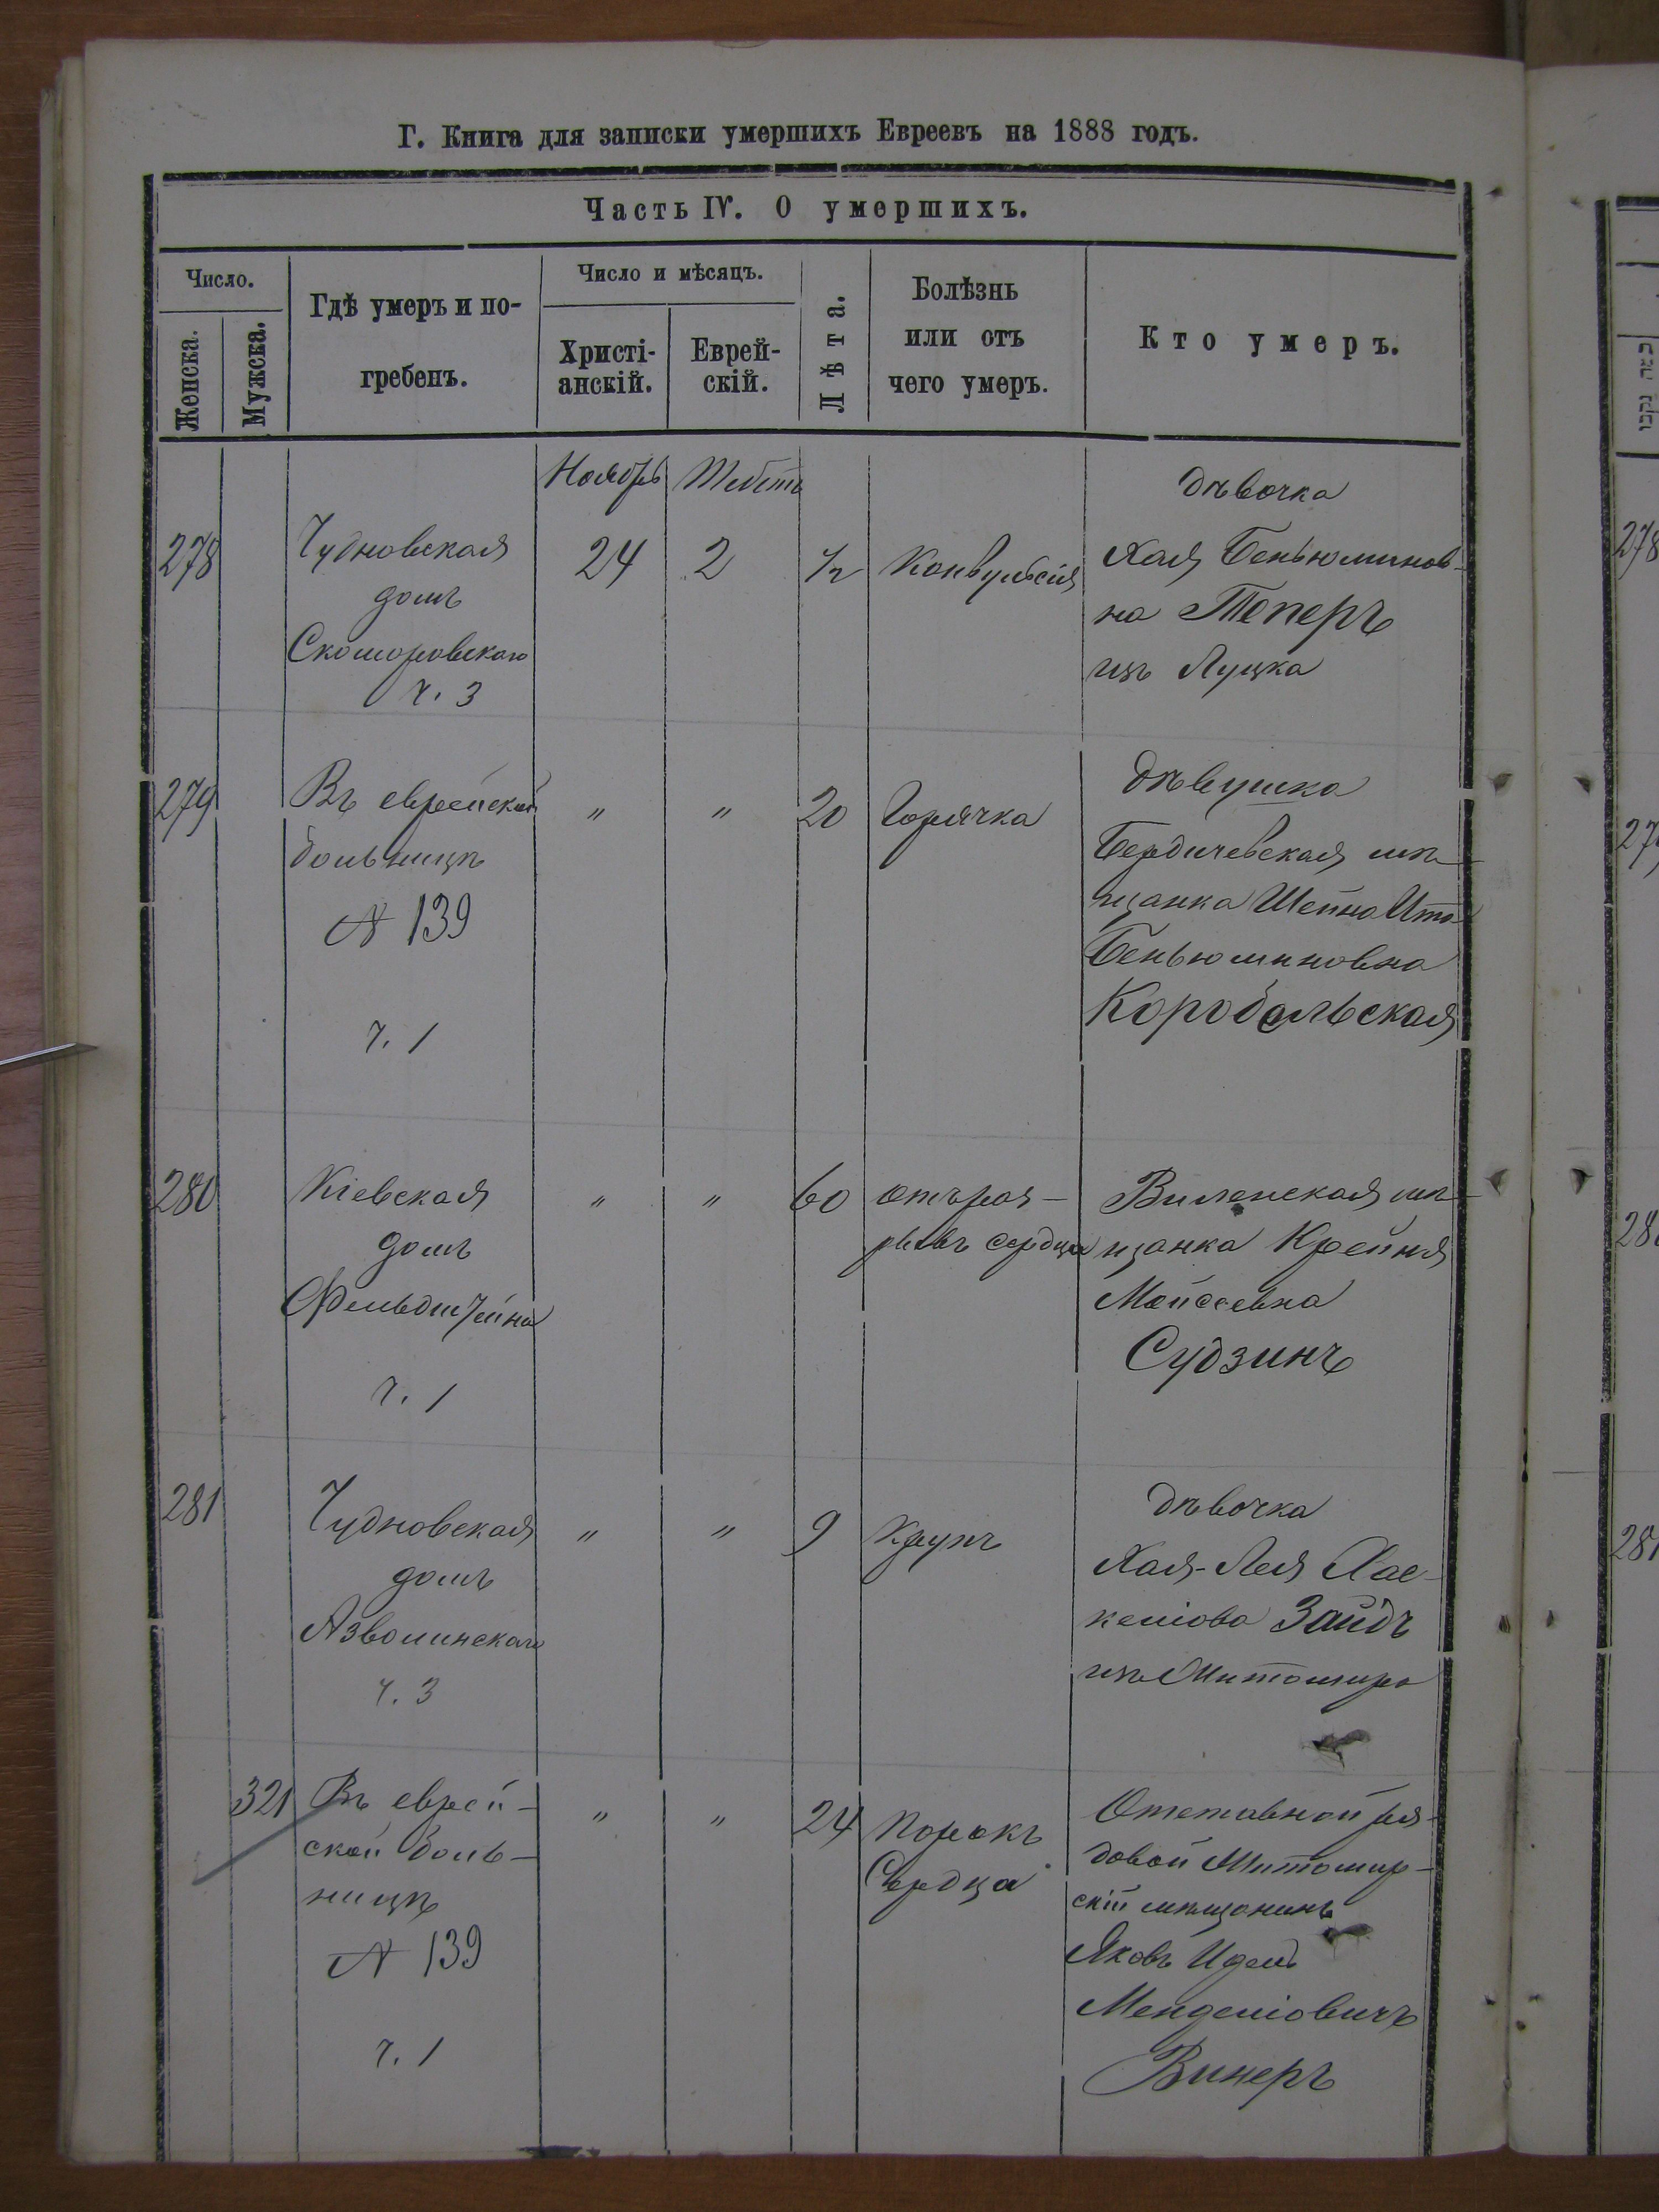 Г. Книга для записки умершихъ Евреевъ на 1888 годъ.
Часть IV. О умершихъ.
Число.
Женска.
Мужска.
Гдѣ умеръ и по-
гребенъ.
Число и мѣсяцъ.
Христі-
анскій.
Еврей-
скій.
Лѣта.
Болѣзнь
или отъ
чего умеръ.
Кто умеръ.
Ноябрь Тебетъ
278
Чудновская
домъ
Скоморовскаго
ч. 3
24
2
1/2
Конвульсія
дѣвочка
Хая Беньюминов-
на Теперъ
изъ Луцка
279
Въ еврейской
больницѣ
N 139
ч. 1
"
"
20
Горячка
дѣвушка
Бердичевская мѣ-
щанка Шейна Ита
Беньюминовна
Коробельская
280
Кіевская
домъ
Фельдштейна
ч. 1
"
"
60
отъ раз-
рывъ сердца
Виленская мѣ-
щанка Крейня
Мойсеевна
Судзинъ
281
Чудновская
домъ
Азволинскаго
ч. 3
"
"
9
Крупъ
дѣвочка
Хая-Лея Хас-
келіова Зайдъ
изъ Житомира
321
Въ еврей-
ской боль-
ницѣ
N 139
ч. 1
"
"
24
Порокъ
Сердца
Отставной ря-
довой Житомир-
скій мѣщанинъ
Яковъ Идель
Менделіовичъ
Винеръ
278
281